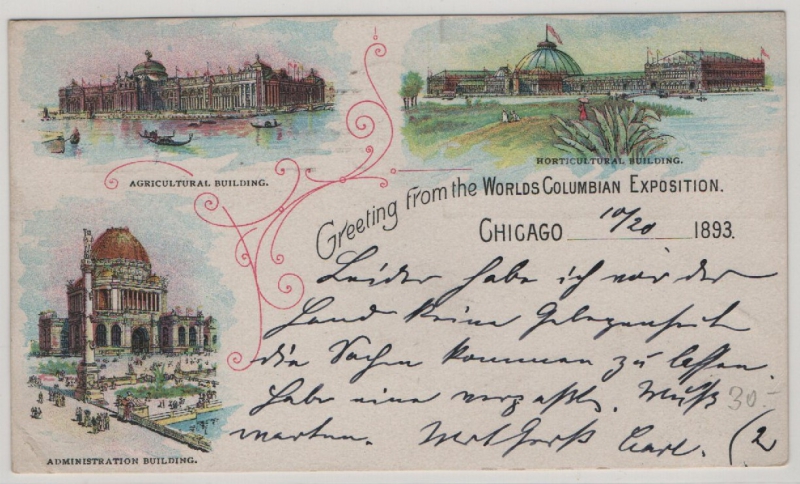 AGRICULTURAL BUILDING.
HORTICULTURAL BUILDING.
Greeting from the WORLDS COLUMBIAN EXPOSITION.
CHICAGO 10/20 1893.
Leider habe ich vor der
Hand keine Gelegenheit
die Sachen kommen zu lassen.
Habe eine verpaßt. Muß
warten. Mit Gruß Carl.
30.-
(2
ADMINISTRATION BUILDING.